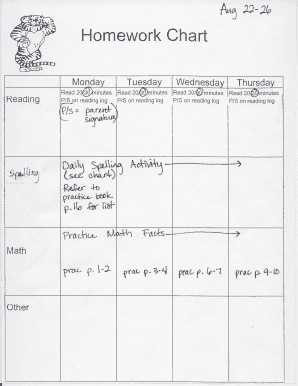 Aug 22-26
Homework Chart
Monday Tuesday Wednesday Thursday
Reading
Read 20/30 minutes Read 20/30 minutes Read 20/30 minutes Read 20/30 minutes
P/S on reading log P/S on reading log P/S on reading log P/S on reading log
(P/S = parent
signature)
Spelling
Daily Spelling Activity
(see chart)
Refer to
practice book
p. 16 for list
Practice Math Facts
Math
prac p. 1-2 prac p. 3-4 prac p. 6-7 prac p. 9-10
Other